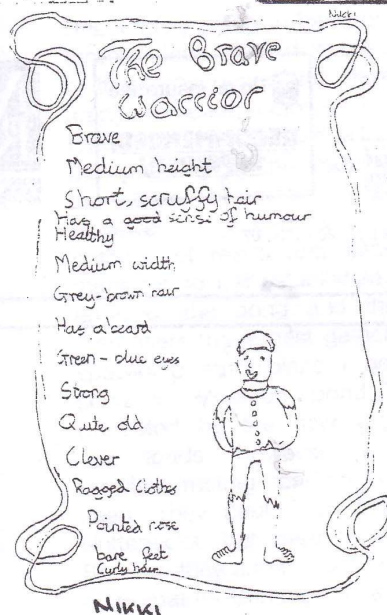 Nikki
The Brave
Warrior
Brave
Medium height
Short, scruffy hair
Has a good sense of humour
Healthy
Medium width
Grey-brown hair
Has a beard
Green - blue eyes
Strong
Quite old
Clever
Ragged Clothes
Pointed nose
bare feet
Curly hair
NIKKI